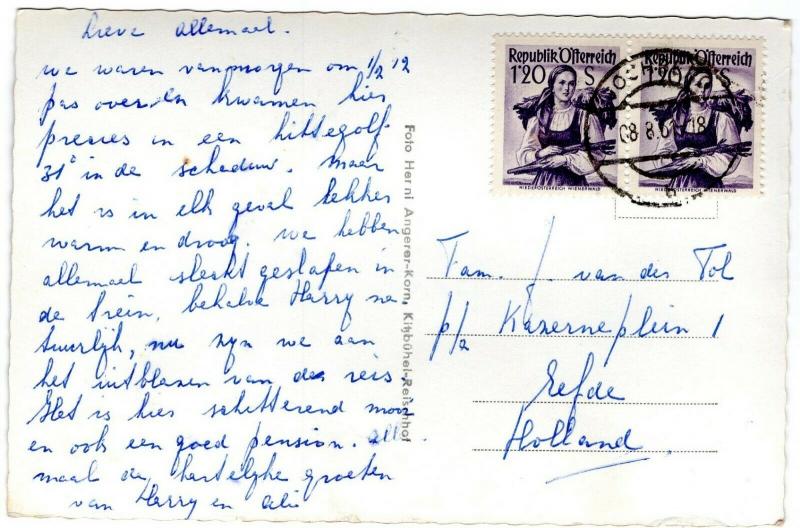 Lieve allemael.
we waren vanmorgen om 1/2 12
pas over en kwamen hier
precies in een hittegolf
31° in de schaduw. Maar
het is in elk geval lekker
warm en droog. We hebben
allemael slecht geslapen in
de trein, behalve Harry na
tuurlijk, nu zijn we aan
het uitblazen van de reis.
Het is hier schitterend mooi
en ook een goed pension. alle
maal de hartelijke groeten
van Harry en Ali
Foto Herni Angerer-Korn, Kitzbühel-Reisenhof
Republik Österreich
1'20 S
NIEDERÖSTERREICH WIENERWALD
Republik Österreich
1'20 S
NIEDERÖSTERREICH WIENERWALD
Fam. J. van der Tol
p/a Kazerneplein 1
Eefde
Holland